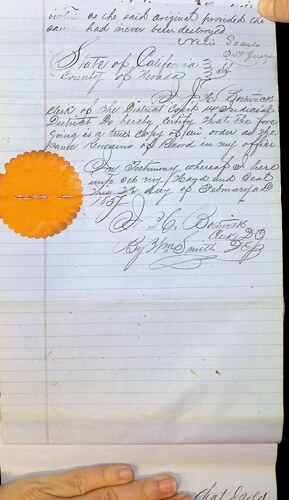 as the said original provided the
same had never been destroyed
Searls
Dist Judge
State of California
County of Nevada
Clerk of the District Court 14 Judicial
District Do hereby certify that the fore
going is a true copy of an order as the
same Remains of Record in my office
In Testimony whereof I here
unto set my Hand and Seal
this day of February AD
1857
Bostwick
Clerk D C
By Wm Smith DEP
that